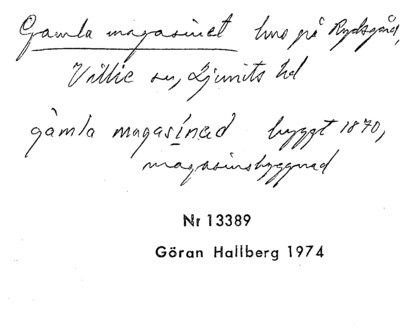 Gamla magasinet hus på Rydsgård,
Villie sn, Ljunits hd
gàmla magasínəd byggt 1870,
magasinsbyggnad
Nr 13389
Göran Hallberg 1974